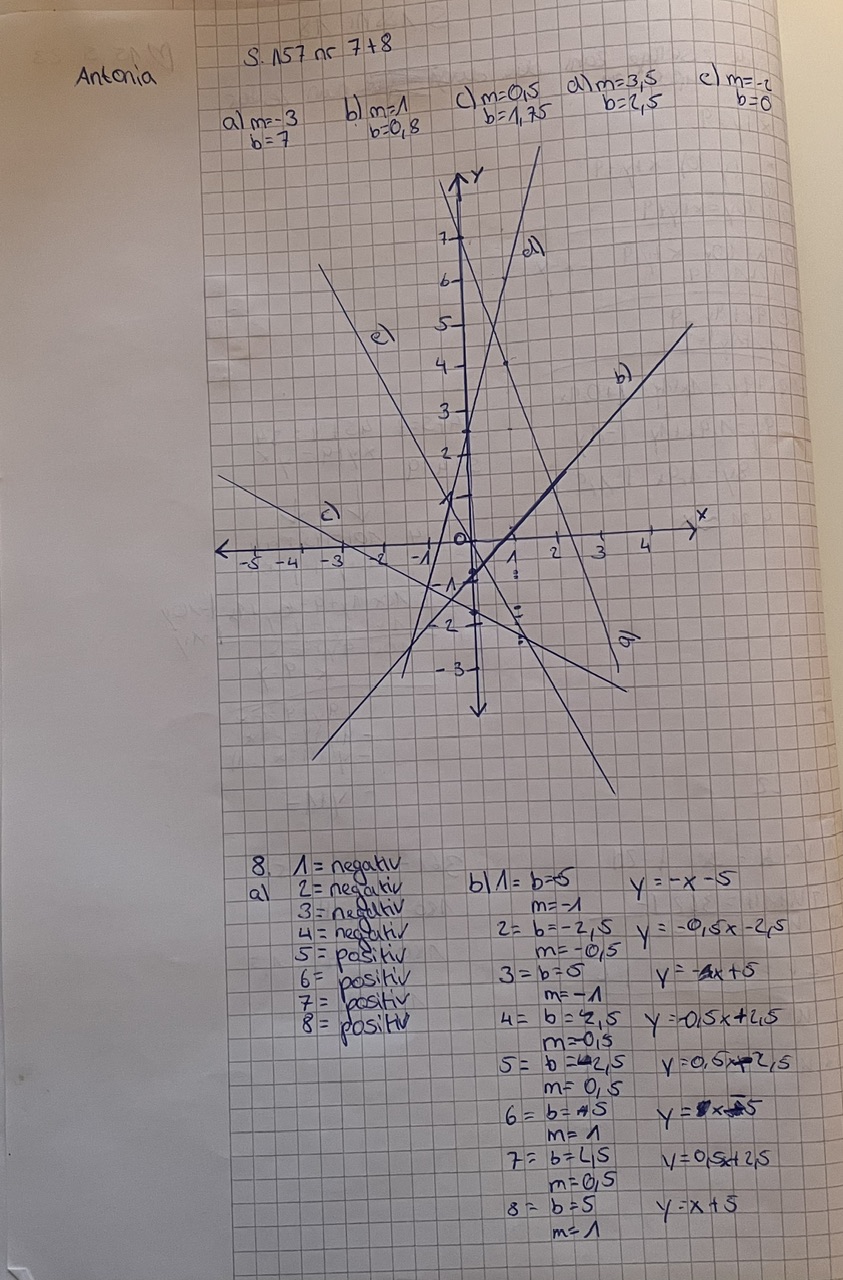 Antonia
S. 157 nr 7+8
a) m=-3 b) m=1 c) m=0,5 d) m=3,5 e) m=-2
b=7 b=0,8 b=1,75 b=2,5 b=0
Y
7
d)
6
e)
5
4
b)
3
2
1
c)
x
0
-5 -4 -3 -2 -1 1 2 3 4
-1
-2
a)
-3
8. 1 = negativ
a) 2 = negativ
3 = negativ
4 = negativ
5 = positiv
6 = positiv
7 = positiv
8 = positiv
b) 1 = b=-5 y = -x -5
m=-1
2 = b=-2,5 y = -0,5x -2,5
m=-0,5
3 = b=5 y = -x+5
m=-1
4 = b=2,5 y=-0,5x+2,5
m=-0,5
5 = b=-2,5 y=0,5x-2,5
m= 0,5
6 = b=-5 y = x-5
m= 1
7 = b=2,5 y=0,5x+2,5
m=0,5
8 = b=5 y=x+5
m=1